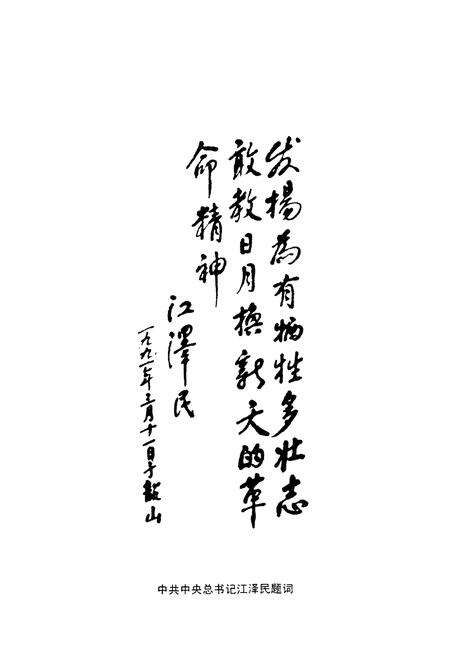 发揚為有牺牲多壮志
敢教日月换新天的革
命精神
江澤民
一九九一年三月十一日于韶山
中共中央总书记江泽民题词